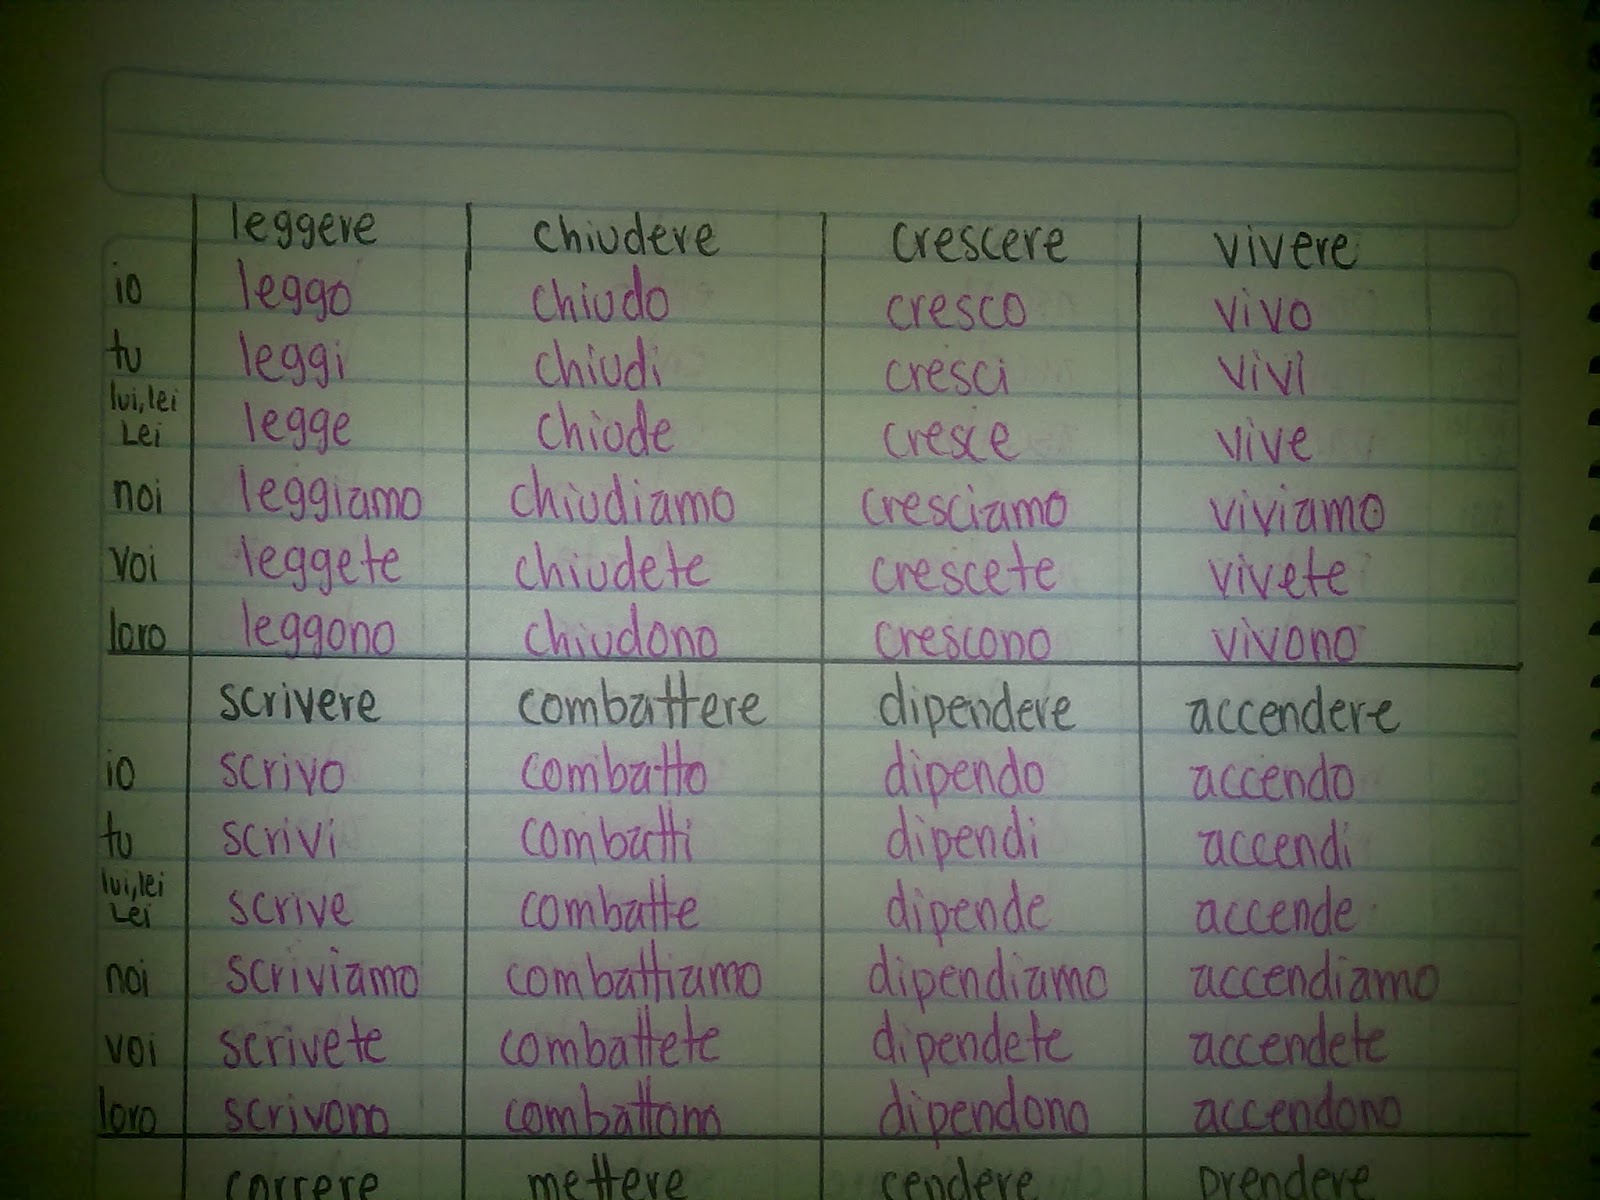 leggere chiudere crescere vivere
io leggo chiudo cresco vivo
tu leggi chiudi cresci vivi
lui, lei
Lei legge chiude cresce vive
noi leggiamo chiudiamo cresciamo viviamo
voi leggete chiudete crescete vivete
loro leggono chiudono crescono vivono
scrivere combattere dipendere accendere
io scrivo combatto dipendo accendo
tu scrivi combatti dipendi accendi
lui, lei
Lei scrive combatte dipende accende
noi scriviamo combattiamo dipendiamo accendiamo
voi scrivete combattete dipendete accendete
loro scrivono combattono dipendono accendono
correre mettere cendere prendere